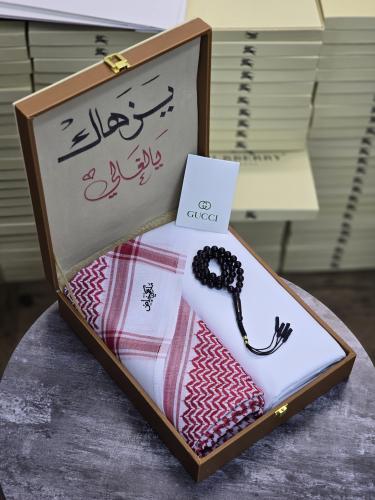 يزهاك
يالغالي
GUCCI
BERRY